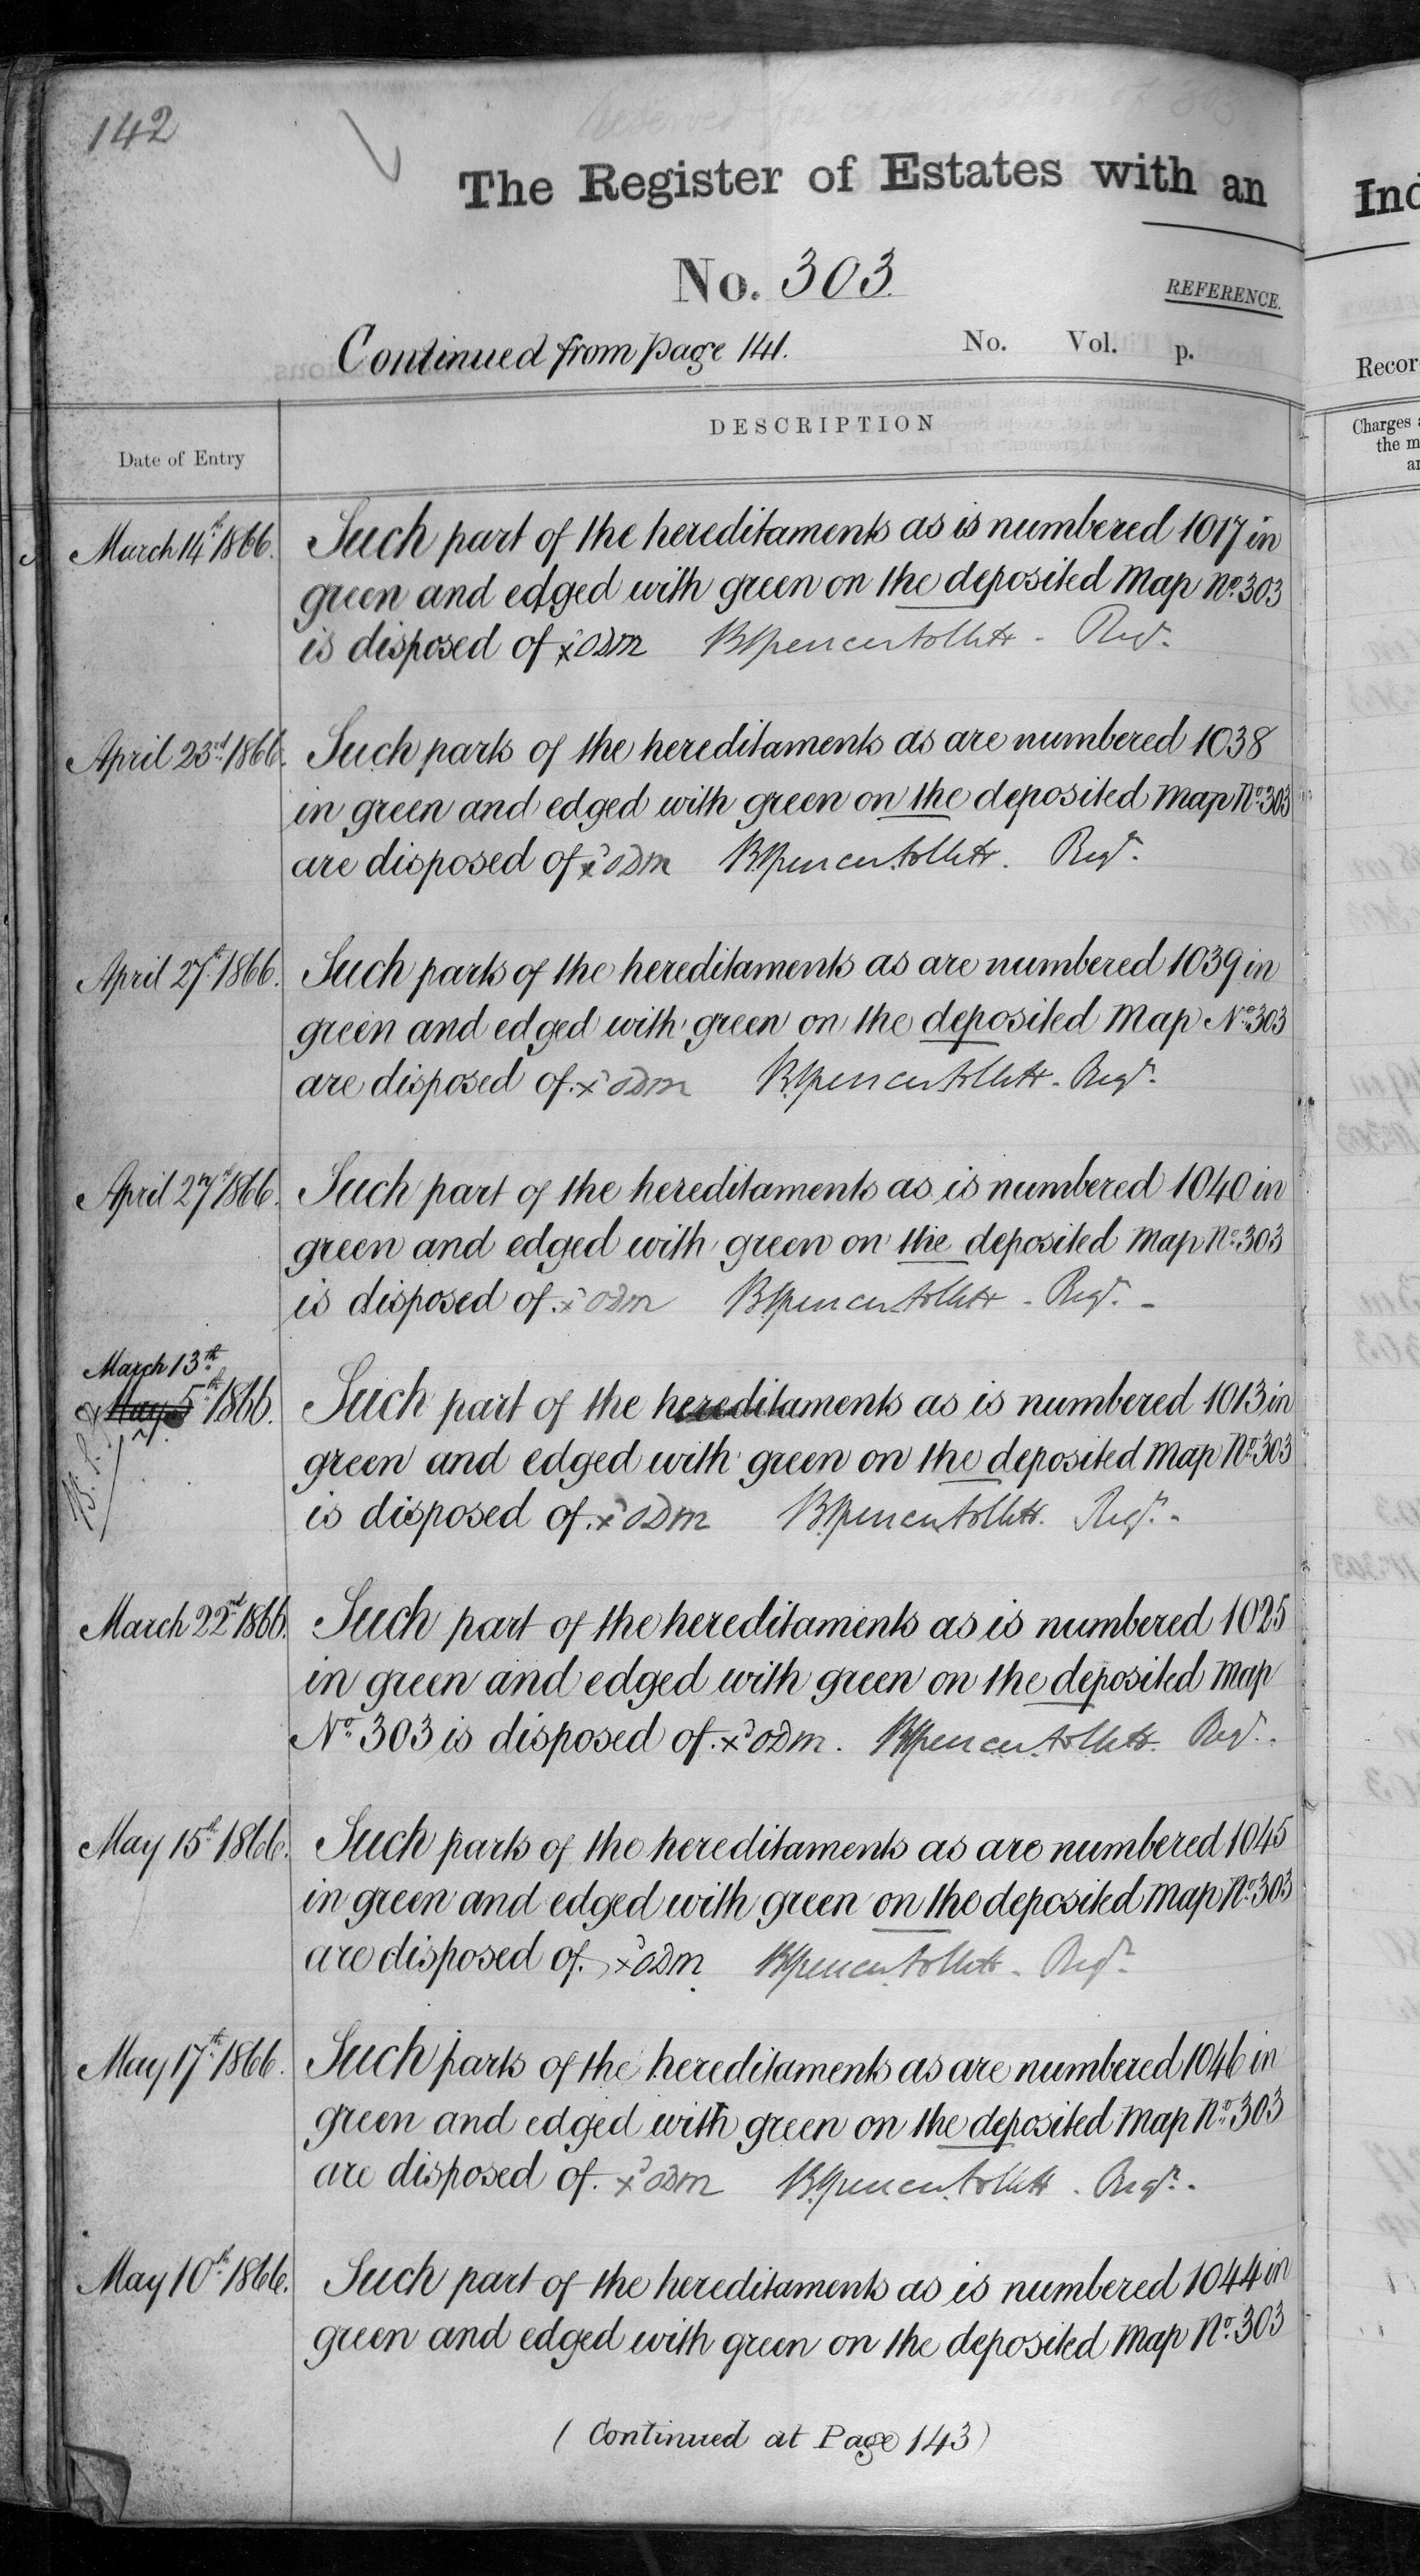 142
The Register of Estates with an
Ind
No. 303.
REFERENCE.
Continued from page 141.
No. Vol. p.
Recor
DESCRIPTION
Date of Entry
Charges
the m
an
March 14th 1866. Such part of the hereditaments as is numbered 1017 in
green and edged with green on the deposited Map No. 303
is disposed of xd ODM BSpencer Follett - Regr.
April 23rd 1866. Such parts of the hereditaments as are numbered 1038
in green and edged with green on the deposited Map No. 303
are disposed of xd ODM BSpencer Follett. Regr.
April 27th 1866. Such parts of the hereditaments as are numbered 1039 in
green and edged with green on the deposited Map No. 303
are disposed of. xd ODM BSpencer Follett - Regr.
April 27th 1866. Such part of the hereditaments as is numbered 1040 in
green and edged with green on the deposited Map No. 303
is disposed of. xd ODM BSpencer Follett - Regr. -
March 13th
May 5th 1866. Such part of the hereditaments as is numbered 1013 in
green and edged with green on the deposited Map No. 303
is disposed of. xd ODM BSpencer Follett. Regr. -
March 22nd 1866. Such part of the hereditaments as is numbered 1025
in green and edged with green on the deposited Map
No. 303 is disposed of. xd ODM. BSpencer Follett. Regr. -
May 15th 1866. Such parts of the hereditaments as are numbered 1045
in green and edged with green on the deposited Map No. 303
are disposed of. xd ODM BSpencer Follett - Regr.
May 17th 1866. Such parts of the hereditaments as are numbered 1046 in
green and edged with green on the deposited Map No. 303
are disposed of. xd ODM BSpencer Follett - Regr. -
May 10th 1866. Such part of the hereditaments as is numbered 1044 in
green and edged with green on the deposited Map No. 303
(Continued at Page 143)